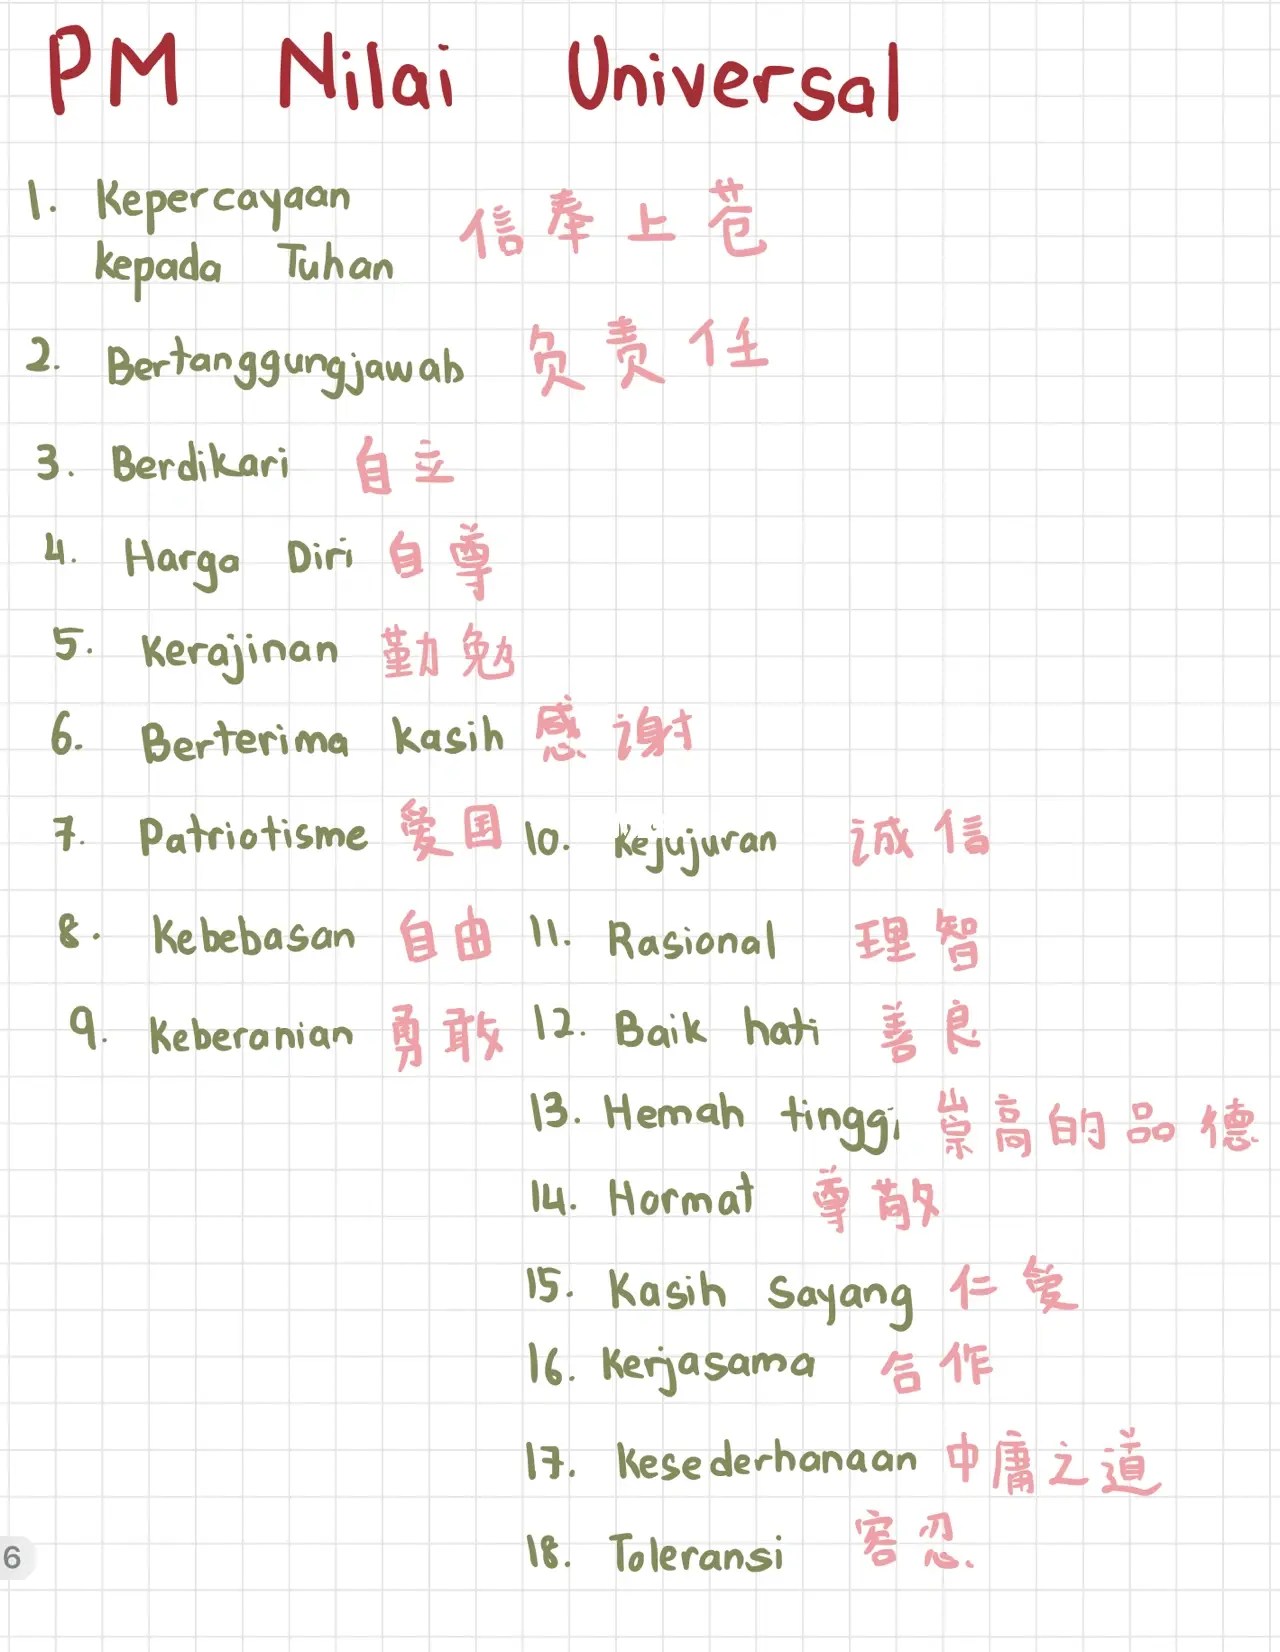 PM Nilai Universal
1. Kepercayaan
kepada Tuhan 信奉上苍
2. Bertanggungjawab 负责任
3. Berdikari 自立
4. Harga Diri 自尊
5. Kerajinan 勤勉
6. Berterima kasih 感谢
7. Patriotisme 爱国
8. Kebebasan 自由
9. Keberanian 勇敢
10. Kejujuran 诚信
11. Rasional 理智
12. Baik hati 善良
13. Hemah tinggi 崇高的品德
14. Hormat 尊敬
15. Kasih Sayang 仁爱
16. Kerjasama 合作
17. Kesederhanaan 中庸之道
18. Toleransi 容忍
6